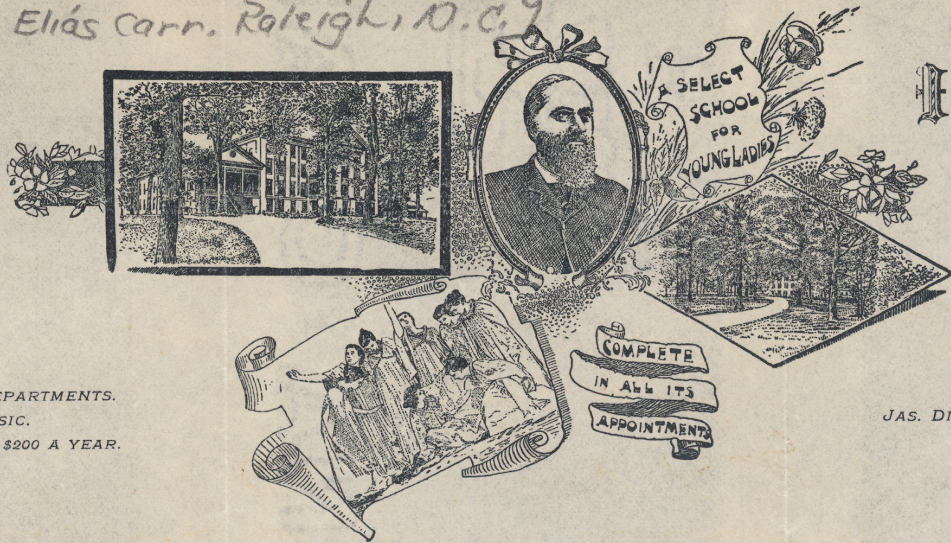 Elias Carr. Raleigh, N.C.
A SELECT
SCHOOL
FOR
YOUNG LADIES
COMPLETE
IN ALL ITS
APPOINTMENTS
EPARTMENTS.
SIC.
$200 A YEAR.
JAS. DI